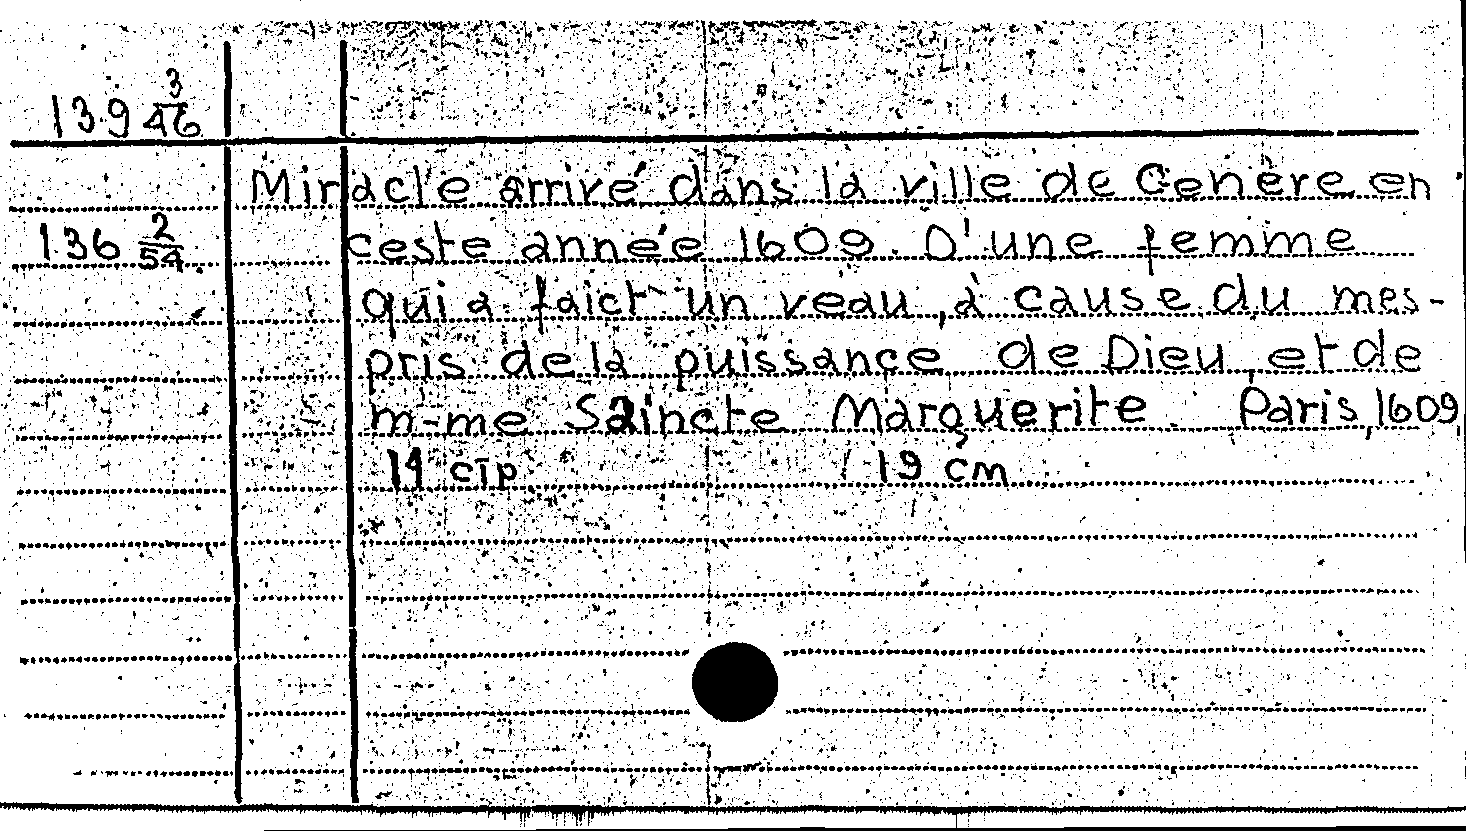 13.9 3/46
Miracle arrivé dans la ville de Genère en
136 2/54 ceste année 1609. D'une femme
qui a faict un veau, à cause du mes-
pris de la puissance de Dieu, et de
m-me Saincte Marguerite Paris, 1609
14 стр 19 cm